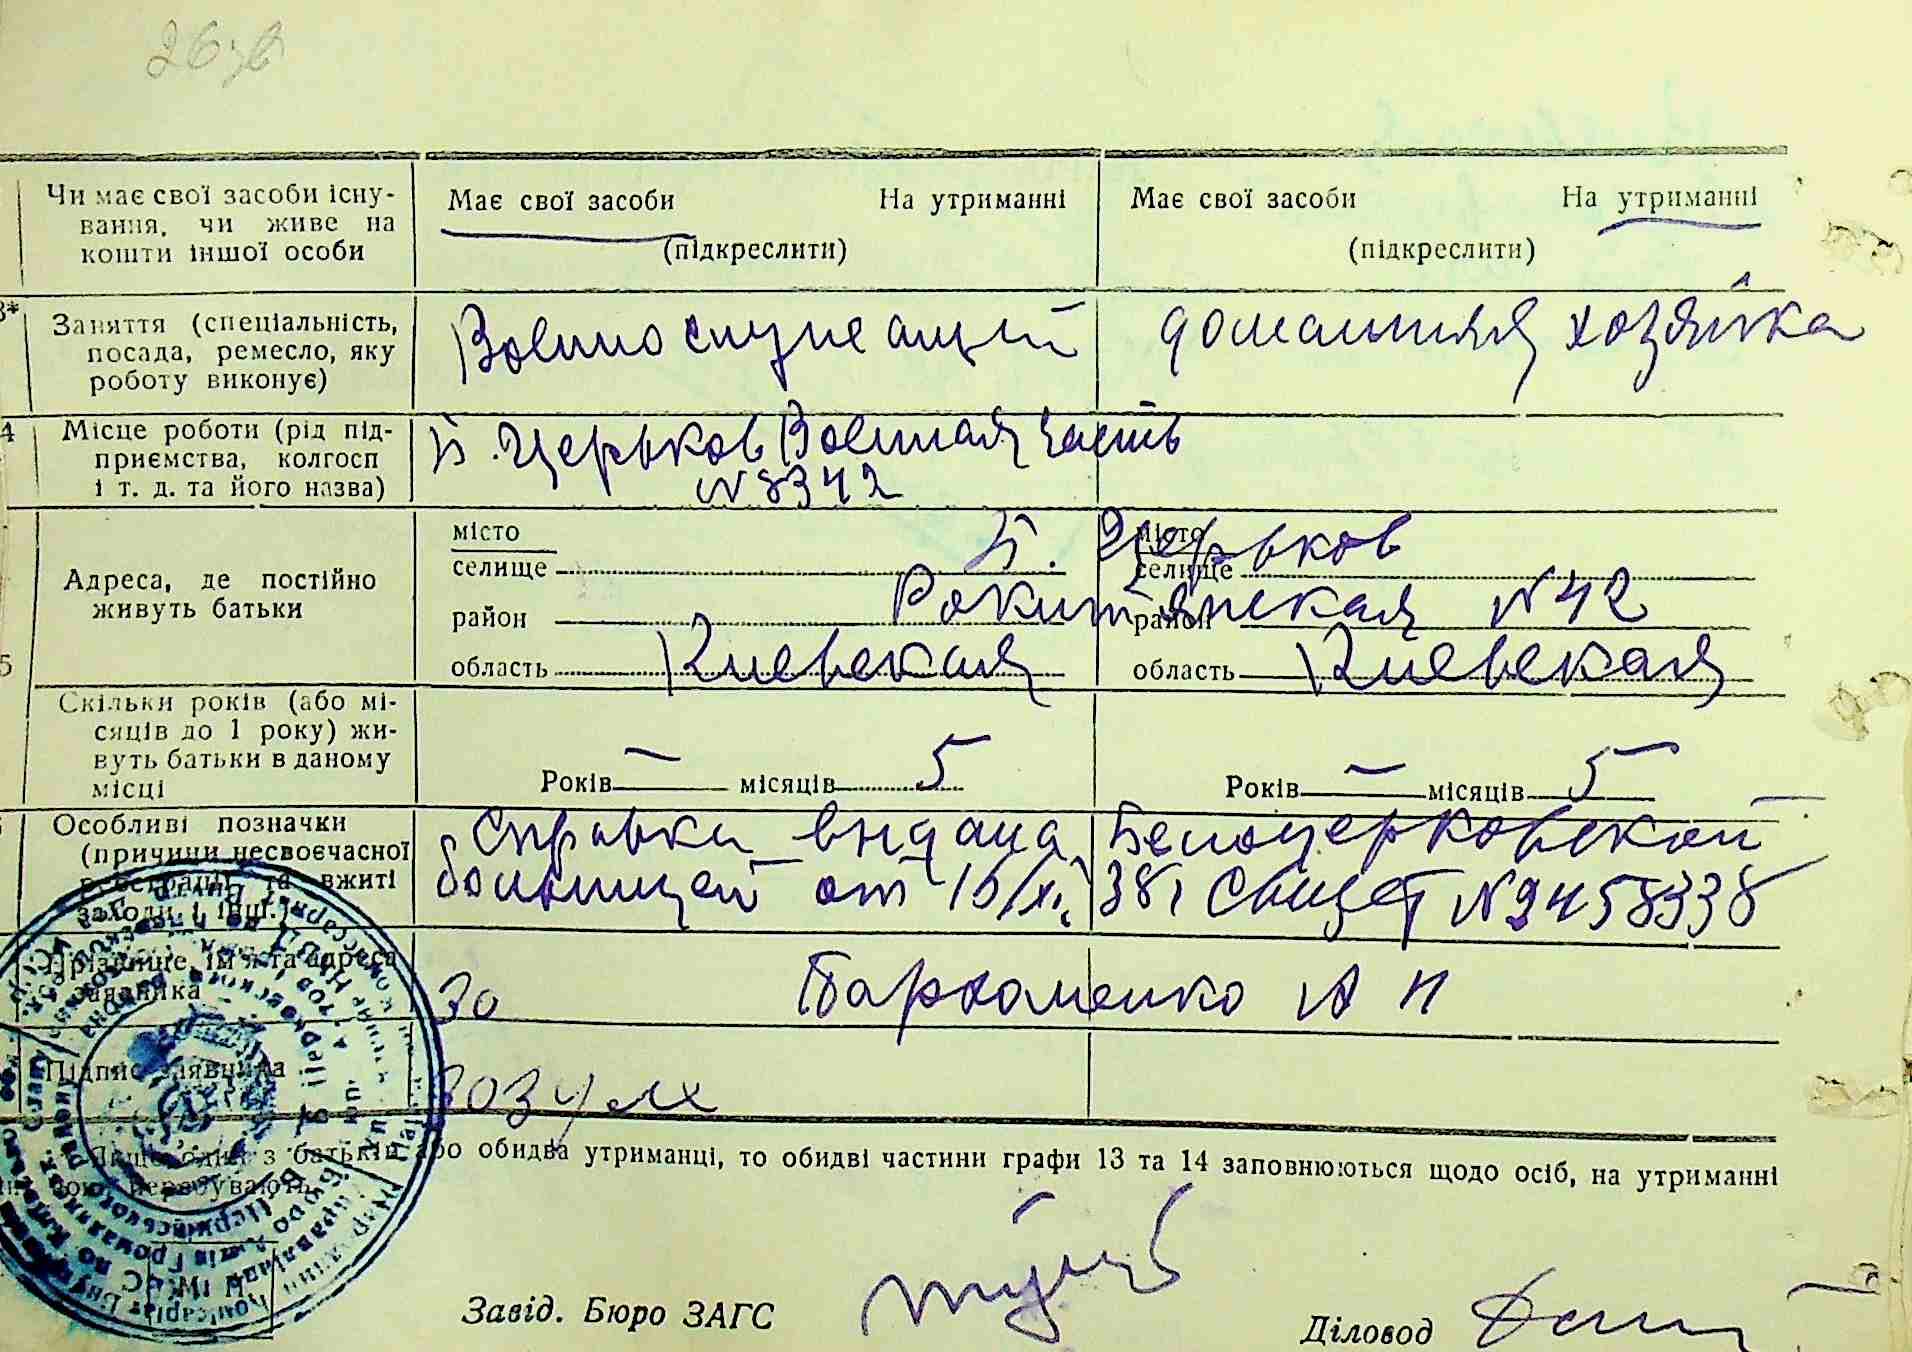 Чи має свої засоби існу-
вання, чи живе на
кошти іншої особи
Має свої засоби На утриманні
(підкреслити)
Має свої засоби На утриманні
(підкреслити)
Заняття (спеціальність,
посада, ремесло, яку
роботу виконує)
Военнослужащий
домашняя хозяйка
Місце роботи (рід під-
приємства, колгосп
і т. д. та його назва)
Б. Церьков Военная часть
№ 8342
Адреса, де постійно
живуть батьки
місто
селище
район
область
місто
селище
район
область
Б. Церьков
Рокитянская №42
Киевская
Киевская
Скільки років (або мі-
сяців до 1 року) жи-
вуть батьки в даному
місці
Років — місяців 5
Років — місяців 5
Особливі позначки
(причини несвоєчасної
реєстрації та вжиті
заходи і інш.)
Справка выдана Белоцерковской
больницей от 15/XI 38г №2458338
Прізвище, ім'я та адреса
заявника
За Пархоменко А П
Підпис заявника
Зозуля
або обидва утриманці, то обидві частини графи 13 та 14 заповнюються щодо осіб, на утриманні
Завід. Бюро ЗАГС
Діловод